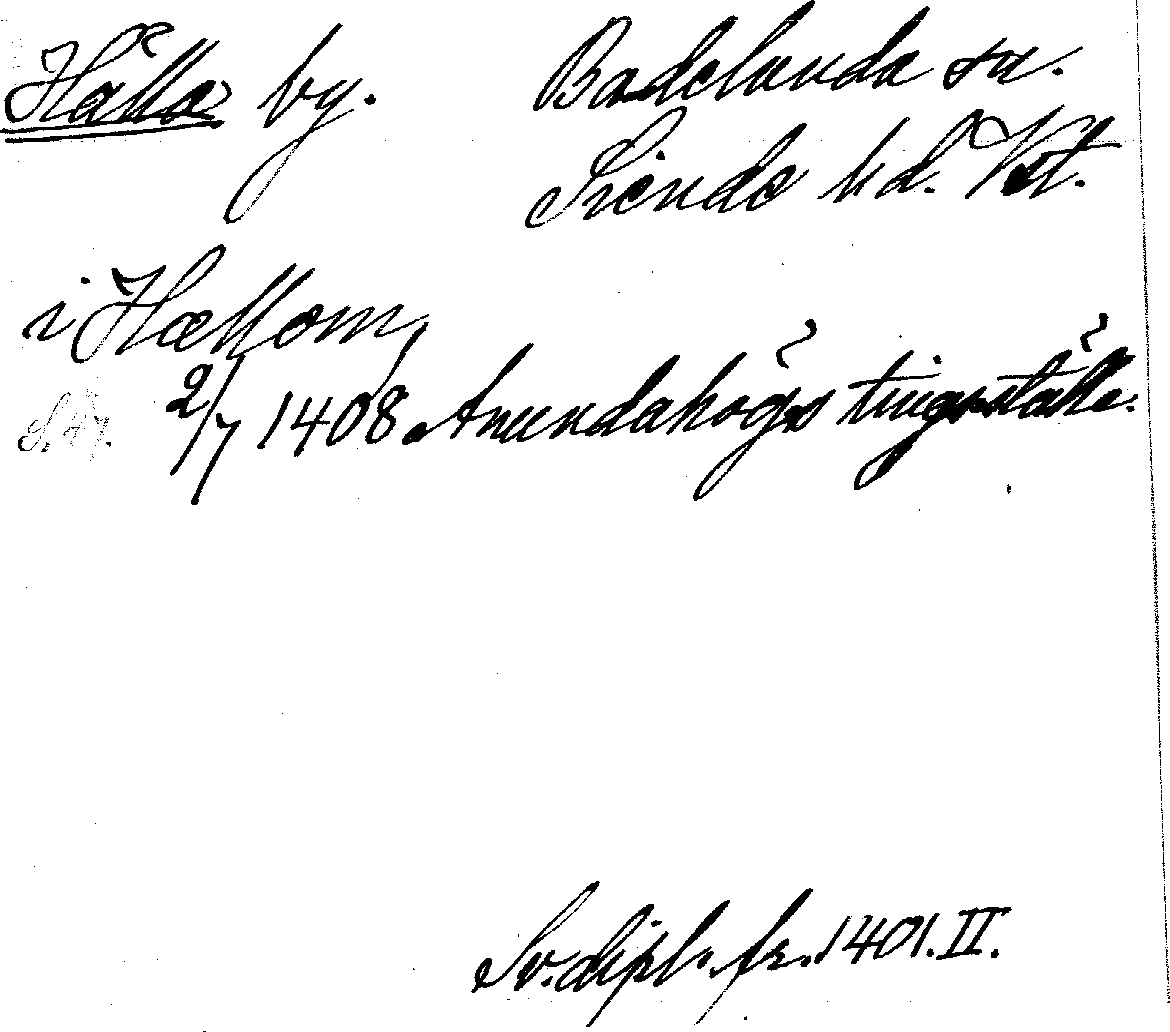 Hälla by. Badelunda sn.
Siende hd. Vst.
i Hællom,
S. 47. 2/7 1408. Anundahögs tingställe.
Sv. dipl. fr. 1401. II.